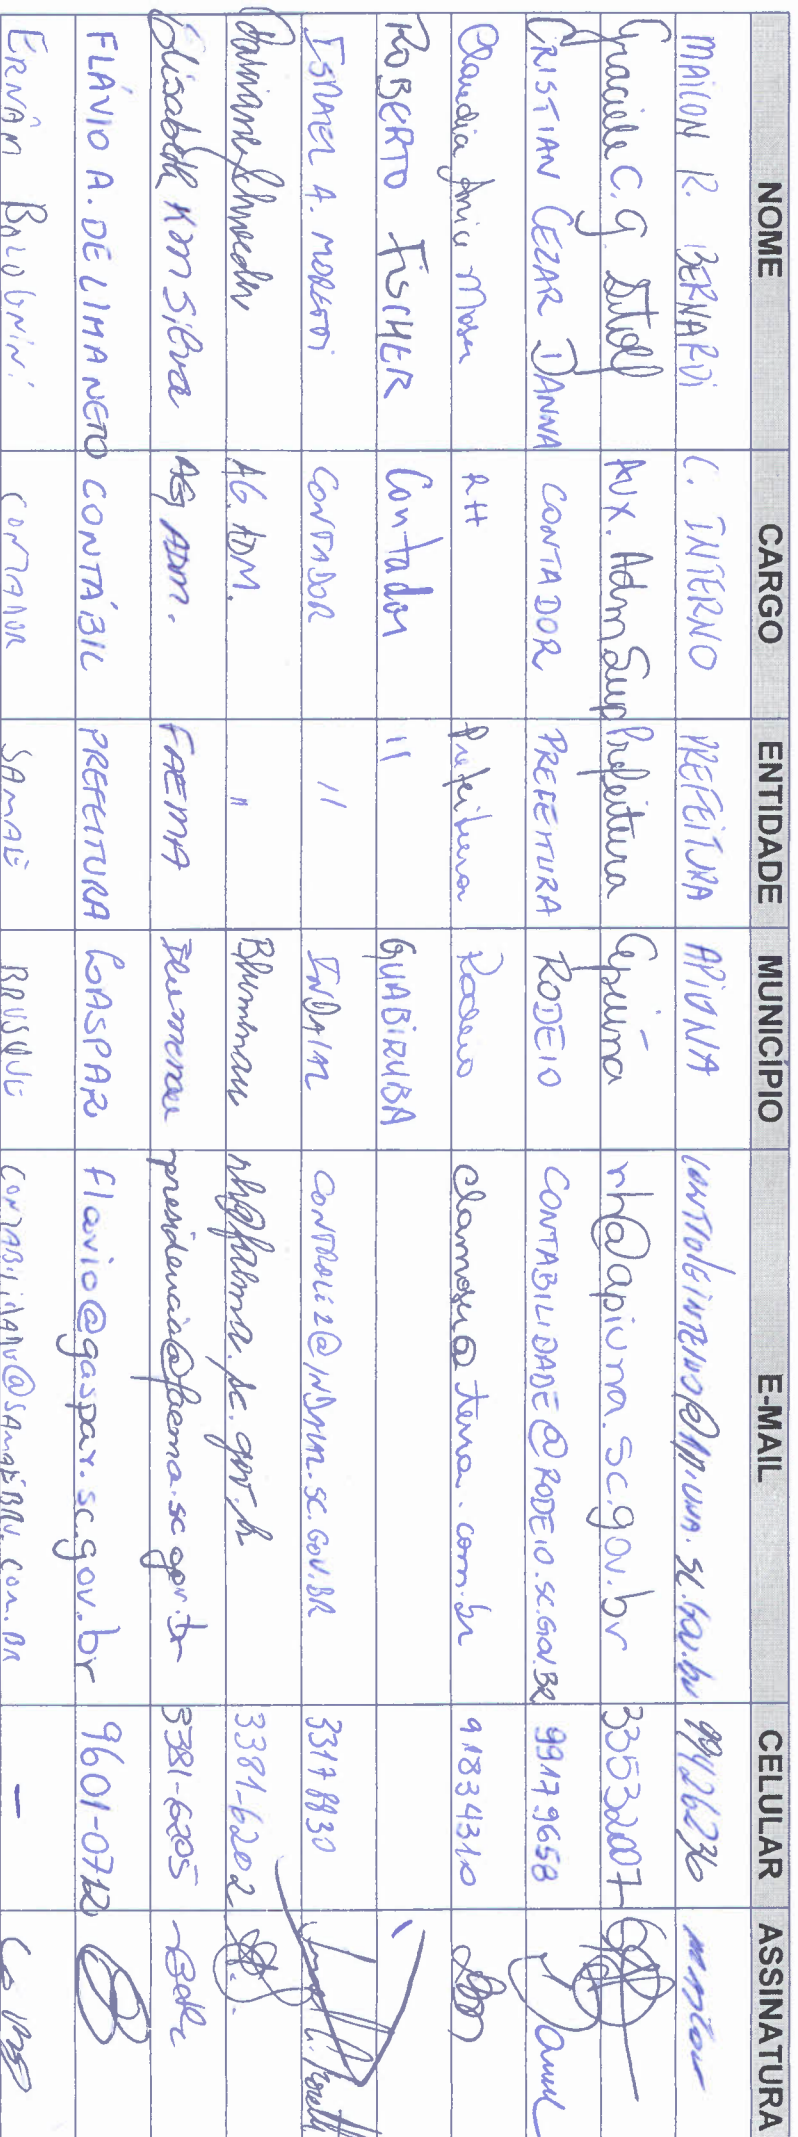 NOME CARGO ENTIDADE MUNICÍPIO E-MAIL CELULAR ASSINATURA
MAICON R. BERNARDI C. INTERNO PREFEITURA APIUNA controleinterno@apiuna.sc.gov.br 99426236
Graciele C. G. AUX. Adm Sup Prefeitura Apiúna rh@apiuna.sc.gov.br 33532007
CRISTIAN CEZAR DANNA CONTADOR PREFEITURA RODEIO CONTABILIDADE@RODEIO.SC.GOV.BR 99179658
Claudia Moser RH Prefeitura Rodeio clamoser@terra.com.br 91834310
ROBERTO FISCHER Contador " GUABIRUBA
ISRAEL A. MORETTI CONTADOR " INDAIAL CONTROLE2@INDAIAL.SC.GOV.BR 33178830
AG. ADM. " Blumenau 3381-6202
Elisabeth Silva AG ADM. FAEMA Blumenau presidencia@faema.sc.gov.br 3381-6205
FLÁVIO A. DE LIMA NETO CONTÁBIL PREFEITURA GASPAR flavio@gaspar.sc.gov.br 9601-0712
CONTADOR SAMAE BRUSQUE CONTABILIDADE@SAMAEBRU.COM.BR –